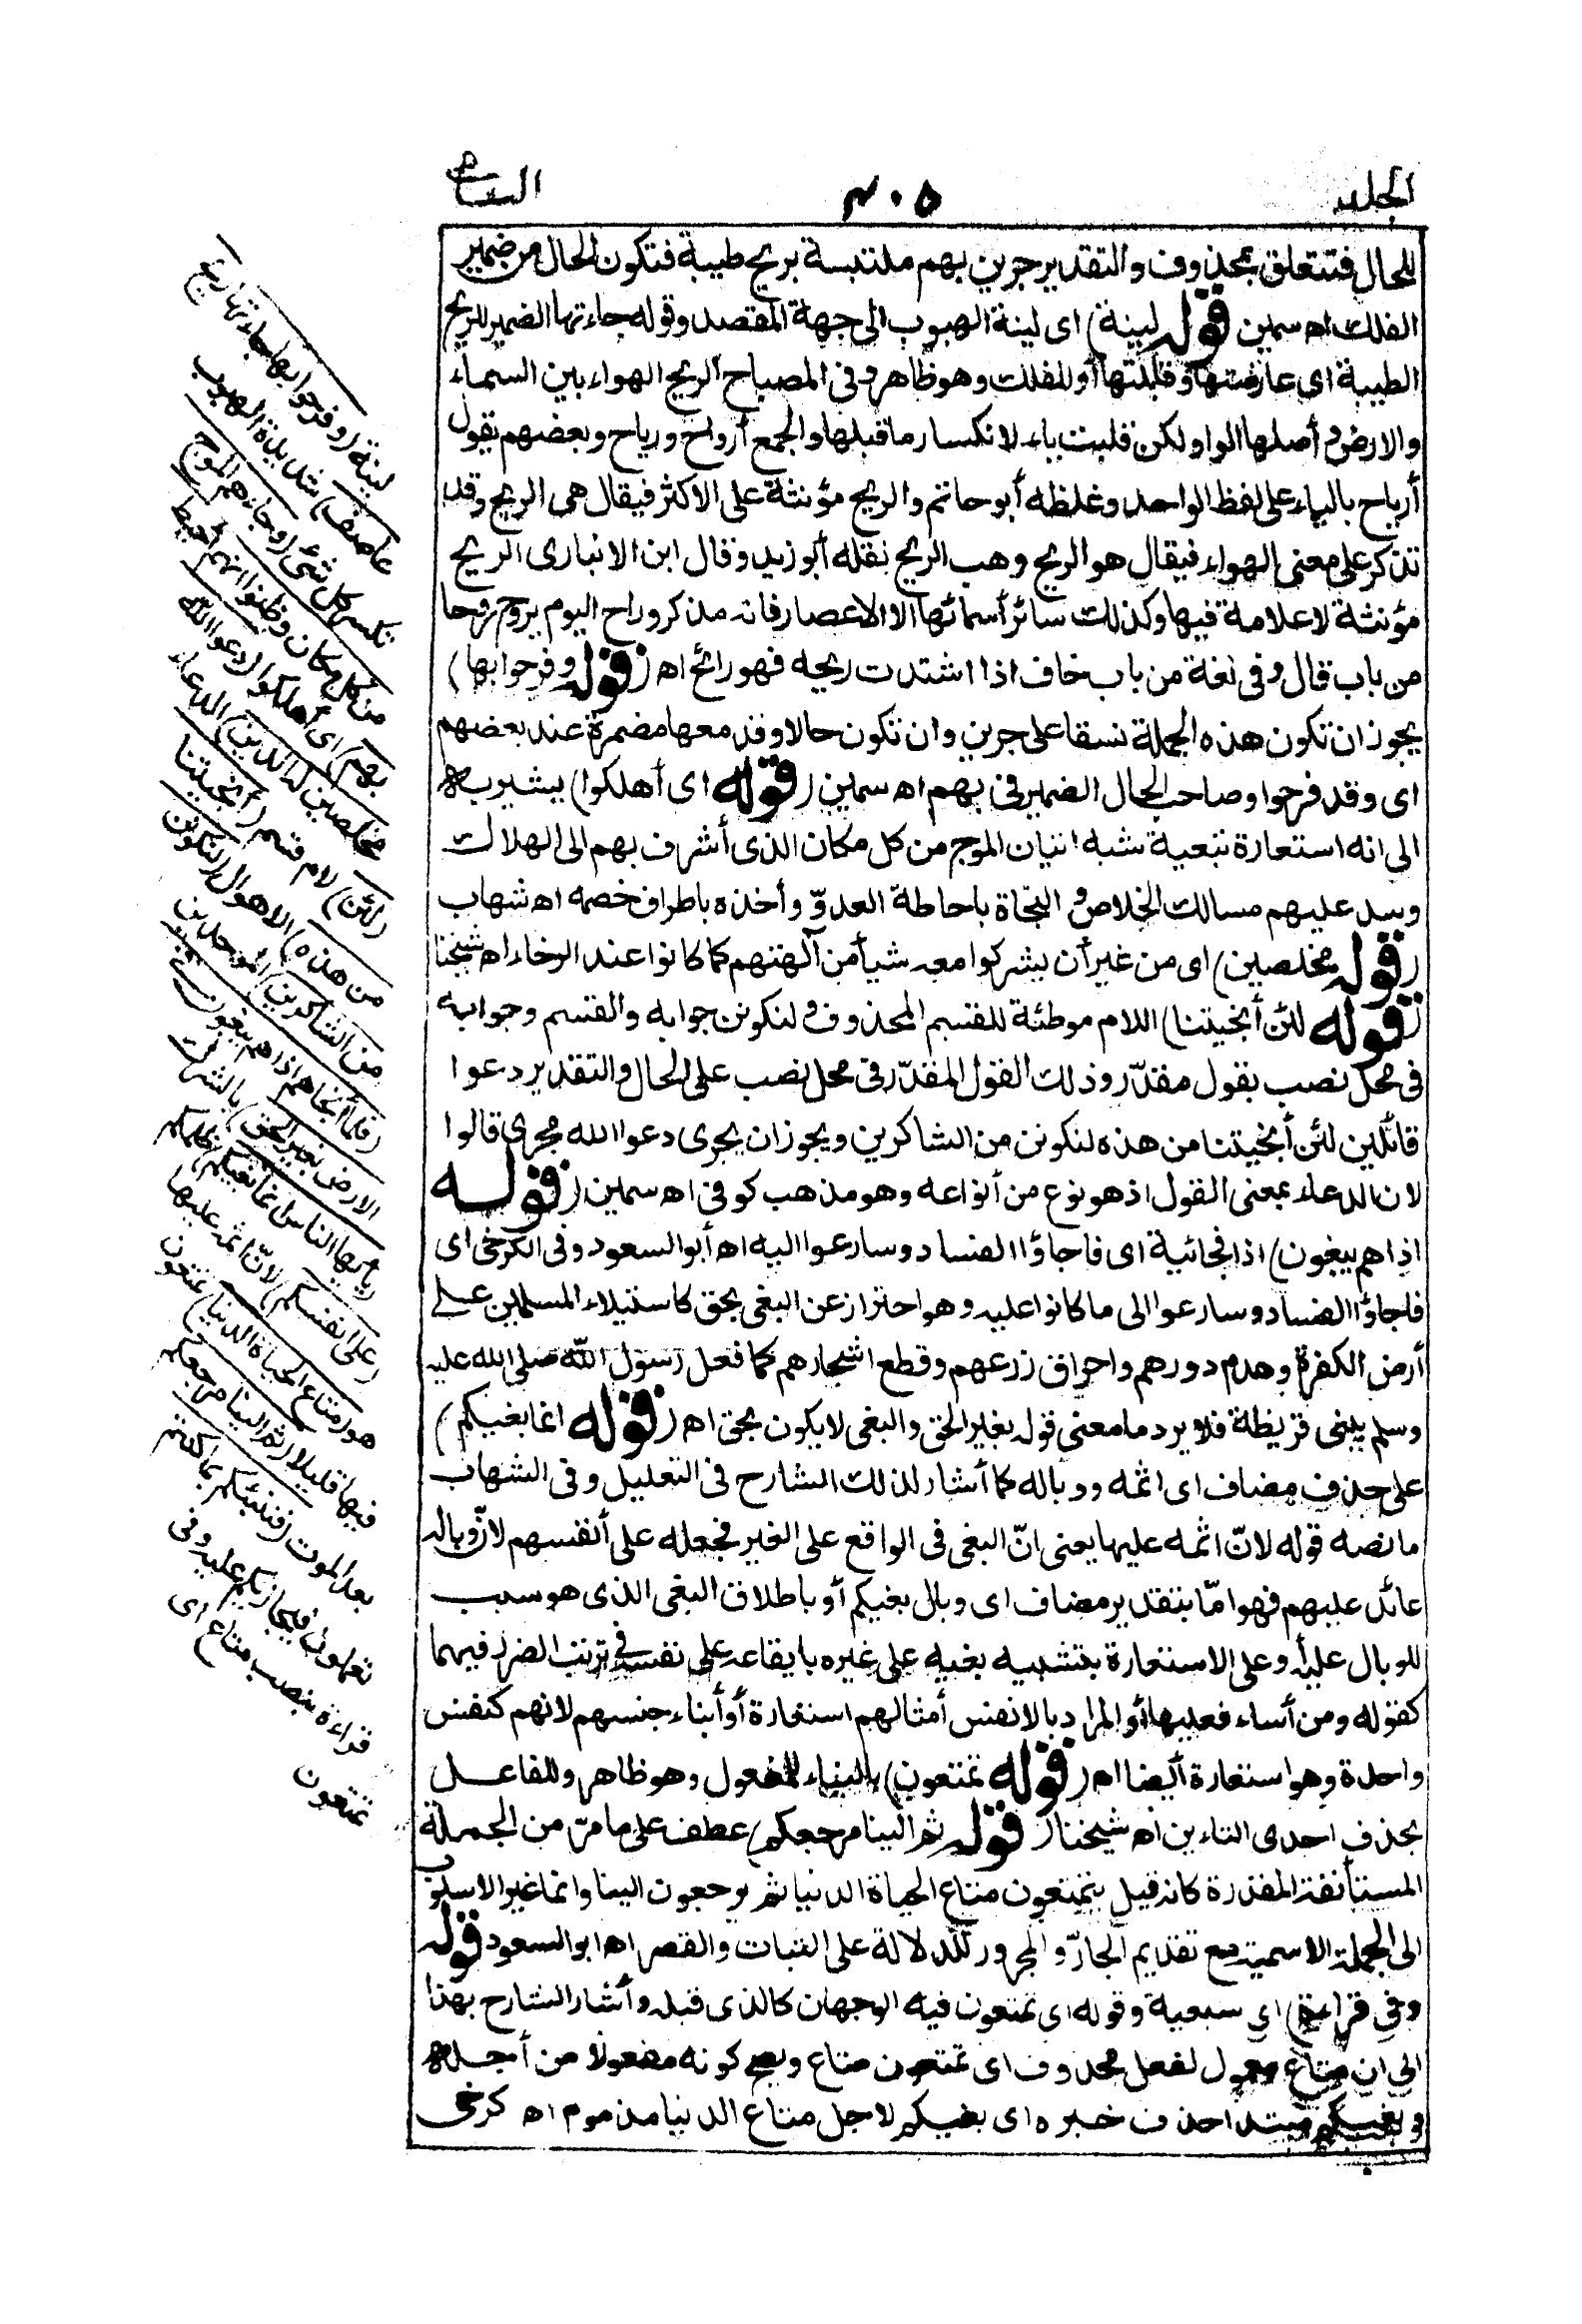 الجلد
٣٠٥
السابع
للحال فتتعلق بمحذوف والتقدير جرين بهم ملتبسة بريح طيبة فتكون الحال من ضمير
الفلك اه سمين (قوله لينة) اى لينة الهبوب الى جهة المقصد وقوله جاءتها الضمير للريح
الطيبة اى عارضتها وقابلتها أو للفلك وهو ظاهر وفى المصباح الريح الهواء بين السماء
والارض وأصلها الواو لكن قلبت ياء لانكسار ما قبلها والجمع أرواح ورياح وبعضهم يقول
أرياح بالياء على لفظ الواحد وغلطه أبو حاتم والريح مؤنثة على الاكثر فيقال هى الريح وقد
تذكر على معنى الهواء فيقال هو الريح وهب الريح نقله أبو زيد وقال ابن الانبارى الريح
مؤنثة لا علامة فيها وكذلك سائر أسمائها الا الاعصار فانه مذكر وراح اليوم يروح روحا
من باب قال وفى لغة من باب خاف اذا اشتدت ريحه فهو رائح اه (قوله وفرحوا بها)
يجوز ان تكون هذه الجملة نسقا على جرين وان تكون حالا وقد معها مضمرة عند بعضهم
اى وقد فرحوا وصاحب الحال الضمير فى بهم اه سمين (قوله اى أهلكوا) يشير به
الى انه استعارة تبعية شبه اتيان الموج من كل مكان الذى أشرف بهم الى الهلاك
وسد عليهم مسالك الخلاص والنجاة باحاطة العدوّ وأخذه باطراف خصمه اه شهاب
(قوله مخلصين) اى من غير أن يشركوا معه شيأ من آلهتهم كما كانوا عند الرخاء اه شيخنا
(قوله لئن أنجيتنا) اللام موطئة للقسم المحذوف ولنكونن جوابه والقسم وجوابه
فى محل نصب بقول مقدّر وذلك القول المقدّر فى محل نصب على الحال والتقدير دعوا
قائلين لئن أنجيتنا من هذه لنكونن من الشاكرين ويجوز ان يجرى دعوا الله مجرى قالوا
لان الدعاء بمعنى القول اذ هو نوع من أنواعه وهو مذهب كوفى اه سمين (قوله
اذا هم يبغون) اذا فجائية اى فاجاؤا الفساد وسارعوا اليه اه أبو السعود وفى الكرخى اى
فاجاؤا الفساد وسارعوا الى ما كانوا عليه وهو احتراز عن البغى بحق كاستيلاء المسلمين على
أرض الكفرة وهدم دورهم واحراق زرعهم وقطع اشجارهم كما فعل رسول الله صلى الله عليه
وسلم ببنى قريظة فلا يرد ما معنى قوله بغير الحق والبغى لا يكون بحق اه (قوله انما بغيكم)
على حذف مضاف اى اثمه ووباله كما أشار لذلك الشارح فى التعليل وفى الشهاب
ما نصه قوله لانّ اثمه عليها يعنى انّ البغى فى الواقع على الغير فجعله على أنفسهم لانّ وباله
عائد عليهم فهو امّا بتقدير مضاف اى وبال بغيكم أو باطلاق البغى الذى هو سبب
للوبال عليه أو على الاستعارة بتشبيه بغيه على غيره بايقاعه على نفسه فى ترتب الضرر فيهما
كقوله ومن أساء فعليها أو المراد بالانفس أمثالهم استعارة أو أبناء جنسهم لانهم كنفس
واحدة وهو استعارة أيضا اه (قوله تمتعون) بالبناء للمفعول وهو ظاهر وللفاعل
بحذف احدى التاءين اه شيخنا (قوله ثم الينا مرجعكم) عطف على ما مرّ من الجملة
المستأنفة المقدرة كانه قيل تتمتعون متاع الحياة الدنيا ثم ترجعون الينا وانما غير الاسلوب
الى الجملة الاسمية مع تقديم الجارّ والمجرور للدلالة على الثبات والقصر اه ابو السعود (قوله
وفى قراءة) اى سبعية وقوله اى تمتعون فيه الوجهان كالذى قبله وأشار الشارح بهذا
الى ان متاع معمول لفعل محذوف اى تمتعون متاع ويصح كونه مفعولا من أجله
وبغيكم مبتدا حذف خبره اى بغيكم لاجل متاع الدنيا مذموم اه كرخى
لينة (وفرحوا بها جاءتها ريح
عاصف) شديدة الهبوب
تكسر كل شئ (وجاءهم الموج
من كل مكان وظنوا انهم أحيط
بهم) اى أهلكوا (دعوا الله
مخلصين له الدين) الدعاء
(لئن) لام قسم (أنجيتنا
من هذه) الاهوال (لنكونن
من الشاكرين) الموحدين
(فلما أنجاهم اذا هم يبغون فى
الارض بغير الحق) بالشرك
(يأيها الناس انما بغيكم) ظلمكم
(على انفسكم) لانّ اثمه عليها
هو (متاع الحياة الدنيا) تمتعون
فيها قليلا (ثم الينا مرجعكم)
بعد الموت (فننبئكم بما كنتم
تعملون) فيجازيكم عليه وفى
قراءة بنصب متاع اى
تمتعون